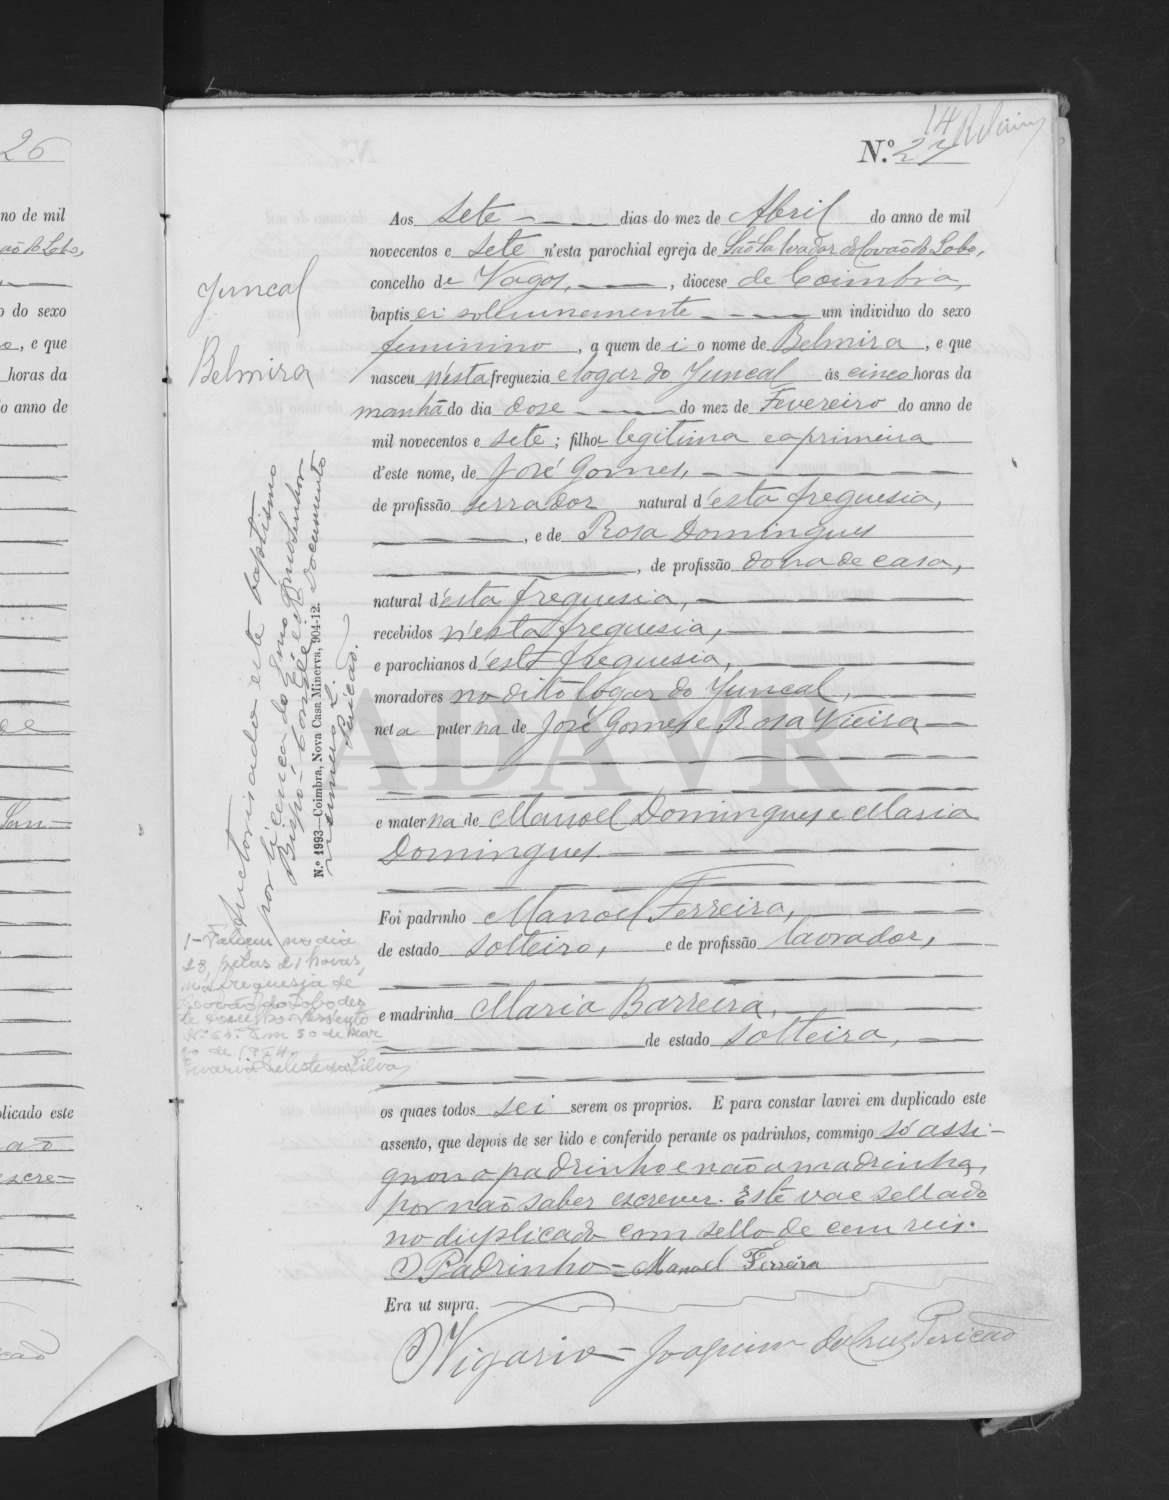 26
no de mil
do sexo
, e que
horas da
o anno de
plicado este
14
N.º 27
Juncal
Belmira
Aos sete dias do mez de Abril do anno de mil
novecentos e sete n'esta parochial egreja de São Salvador de Covão do Lobo,
concelho de Vagos, , diocese de Coimbra,
baptisei solemnemente um individuo do sexo
feminino , a quem dei o nome de Belmira , e que
nasceu n'esta freguezia e logar do Juncal ás cinco horas da
manhã do dia dose do mez de Fevereiro do anno de
mil novecentos e sete ; filha legitima e a primeira
d'este nome, de José Gomes,
de profissão serrador natural d'esta freguesia,
, e de Rosa Domingues
, de profissão dona de casa,
natural d'esta freguesia,
recebidos n'esta freguesia,
e parochianos d'esta freguesia,
moradores no dito logar do Juncal,
neta paterna de José Gomes e Rosa Vieira
e materna de Manoel Domingues e Maria
Domingues.
Foi padrinho Manoel Ferreira,
de estado solteiro, e de profissão lavrador,
e madrinha Maria Barreira,
de estado solteira,
os quaes todos sei serem os proprios. E para constar lavrei em duplicado este
assento, que depois de ser lido e conferido perante os padrinhos, commigo só assi-
gnou o padrinho e não a madrinha,
por não saber escrever. Este vae sellado
no duplicado com sello de cem reis.
O Padrinho = Manoel Ferreira
Era ut supra.
O Vigario = Joaquim da Cruz Pericão
Auctorisado este baptismo
por licença do Exmo
Bispo Conde
documento
numero 2.
Pericão.
N.º 1993—Coimbra, Nova Casa Minerva, 904-12.
1- Faleceu no dia
28, pelas 21 horas,
na freguesia de
Covão do Lobo des-
te concelho
Em 30 de Mar-
ço de
Silva
ADAVR